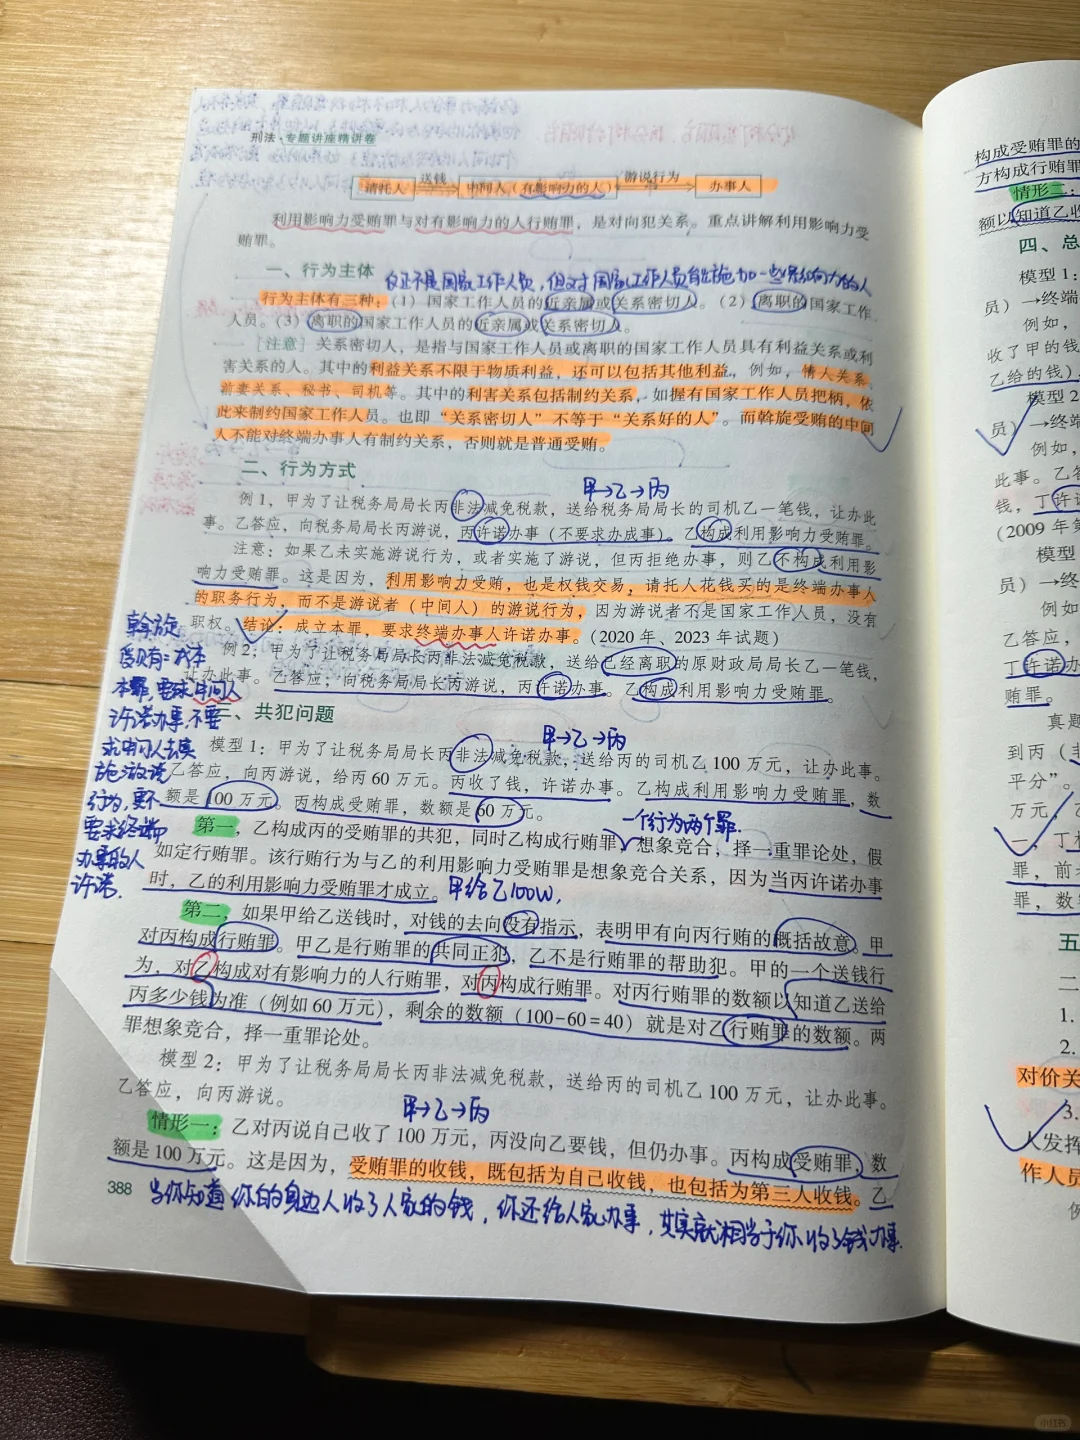 刑法·专题讲座精讲卷
请托人 送钱 中间人（有影响力的人） 游说行为 办事人
利用影响力受贿罪与对有影响力的人行贿罪，是对向犯关系。重点讲解利用影响力受
贿罪。
一、行为主体
行为主体有三种：（1）国家工作人员的近亲属或关系密切人。（2）离职的国家工作
人员。（3）离职的国家工作人员的近亲属或关系密切人。
［注意］关系密切人，是指与国家工作人员或离职的国家工作人员具有利益关系或利
害关系的人。其中的利益关系不限于物质利益，还可以包括其他利益，例如，情人关系、
前妻关系、秘书、司机等。其中的利害关系包括制约关系，如握有国家工作人员把柄，依
此来制约国家工作人员。也即“关系密切人”不等于“关系好的人”。而斡旋受贿的中间
人不能对终端办事人有制约关系，否则就是普通受贿。
二、行为方式
甲→乙→丙
例1，甲为了让税务局局长丙非法减免税款，送给税务局局长的司机乙一笔钱，让办此
事。乙答应，向税务局局长丙游说，丙许诺办事（不要求办成事）。乙构成利用影响力受贿罪。
注意：如果乙未实施游说行为，或者实施了游说，但丙拒绝办事，则乙不构成利用影
响力受贿罪。这是因为，利用影响力受贿，也是权钱交易，请托人花钱买的是终端办事人
的职务行为，而不是游说者（中间人）的游说行为，因为游说者不是国家工作人员，没有
职权。结论：成立本罪，要求终端办事人许诺办事。（2020年、2023年试题）
例2，甲为了让税务局局长丙非法减免税款，送给已经离职的原财政局局长乙一笔钱，
让办此事。乙答应，向税务局局长丙游说，丙许诺办事。乙构成利用影响力受贿罪。
斡旋
受贿：成立
本罪，要求中间人
许诺办事，不要
求中间人去实
施游说
行为，更不
要求终端
办事的人
许诺.
三、共犯问题
甲→乙→丙
模型1：甲为了让税务局局长丙非法减免税款，送给丙的司机乙100万元，让办此事。
乙答应，向丙游说，给丙60万元。丙收了钱，许诺办事。乙构成利用影响力受贿罪，数
额是100万元。丙构成受贿罪，数额是60万元。
一个行为两个罪.
第一，乙构成丙的受贿罪的共犯，同时乙构成行贿罪，想象竞合，择一重罪论处，假
如定行贿罪。该行贿行为与乙的利用影响力受贿罪是想象竞合关系，因为当丙许诺办事
时，乙的利用影响力受贿罪才成立。甲给乙100W，
第二，如果甲给乙送钱时，对钱的去向没有指示，表明甲有向丙行贿的概括故意。甲
对丙构成行贿罪。甲乙是行贿罪的共同正犯，乙不是行贿罪的帮助犯。甲的一个送钱行
为，对乙构成对有影响力的人行贿罪，对丙构成行贿罪。对丙行贿罪的数额以知道乙送给
丙多少钱为准（例如60万元），剩余的数额（100-60=40）就是对乙行贿罪的数额。两
罪想象竞合，择一重罪论处。
模型2：甲为了让税务局局长丙非法减免税款，送给丙的司机乙100万元，让办此事。
乙答应，向丙游说。
甲→乙→丙
情形一：乙对丙说自己收了100万元，丙没向乙要钱，但仍办事。丙构成受贿罪，数
额是100万元。这是因为，受贿罪的收钱，既包括为自己收钱，也包括为第三人收钱。乙
388
当你知道你的身边人收了人家的钱，你还给人家办事，其实就相当于你收了钱办事.
构成受贿罪的
方构成行贿罪
情形二：
额以知道乙收
四、总
模型1：
员）→终端
例如，
收了甲的钱
乙给的钱）
模型2
员）→终端
例如，
此事。乙答
钱，丁许诺
（2009年第
模型
员）→终
例如
乙答应，
丁许诺办
贿罪。
真题
到丙（
平分”。
万元，
一，丁构
罪，前
罪，数
五
二
1.
2.
对价关
3.
人发挥
作人员
小红书